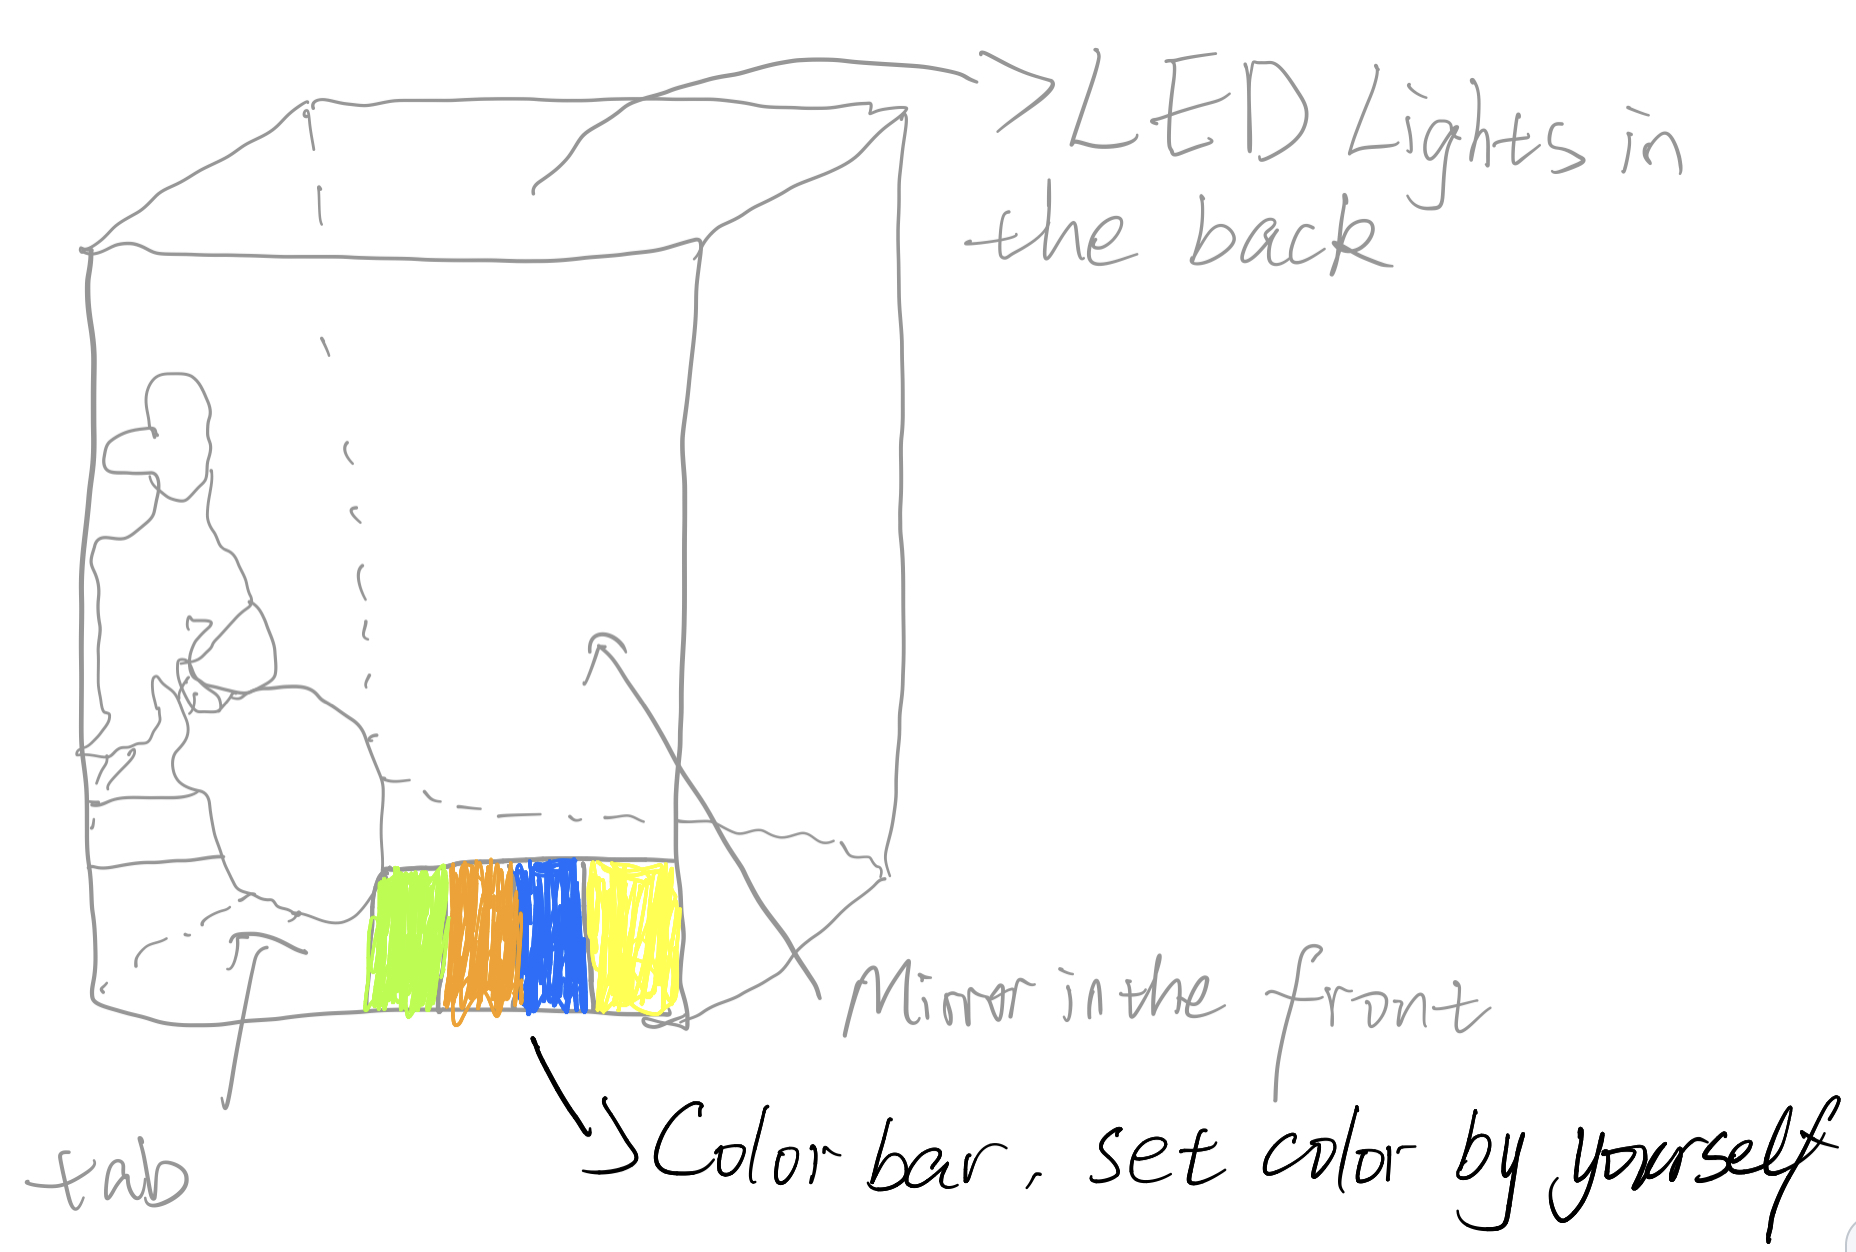 LED Lights in
the back
Mirror in the front
Color bar, set color by yourself
tab